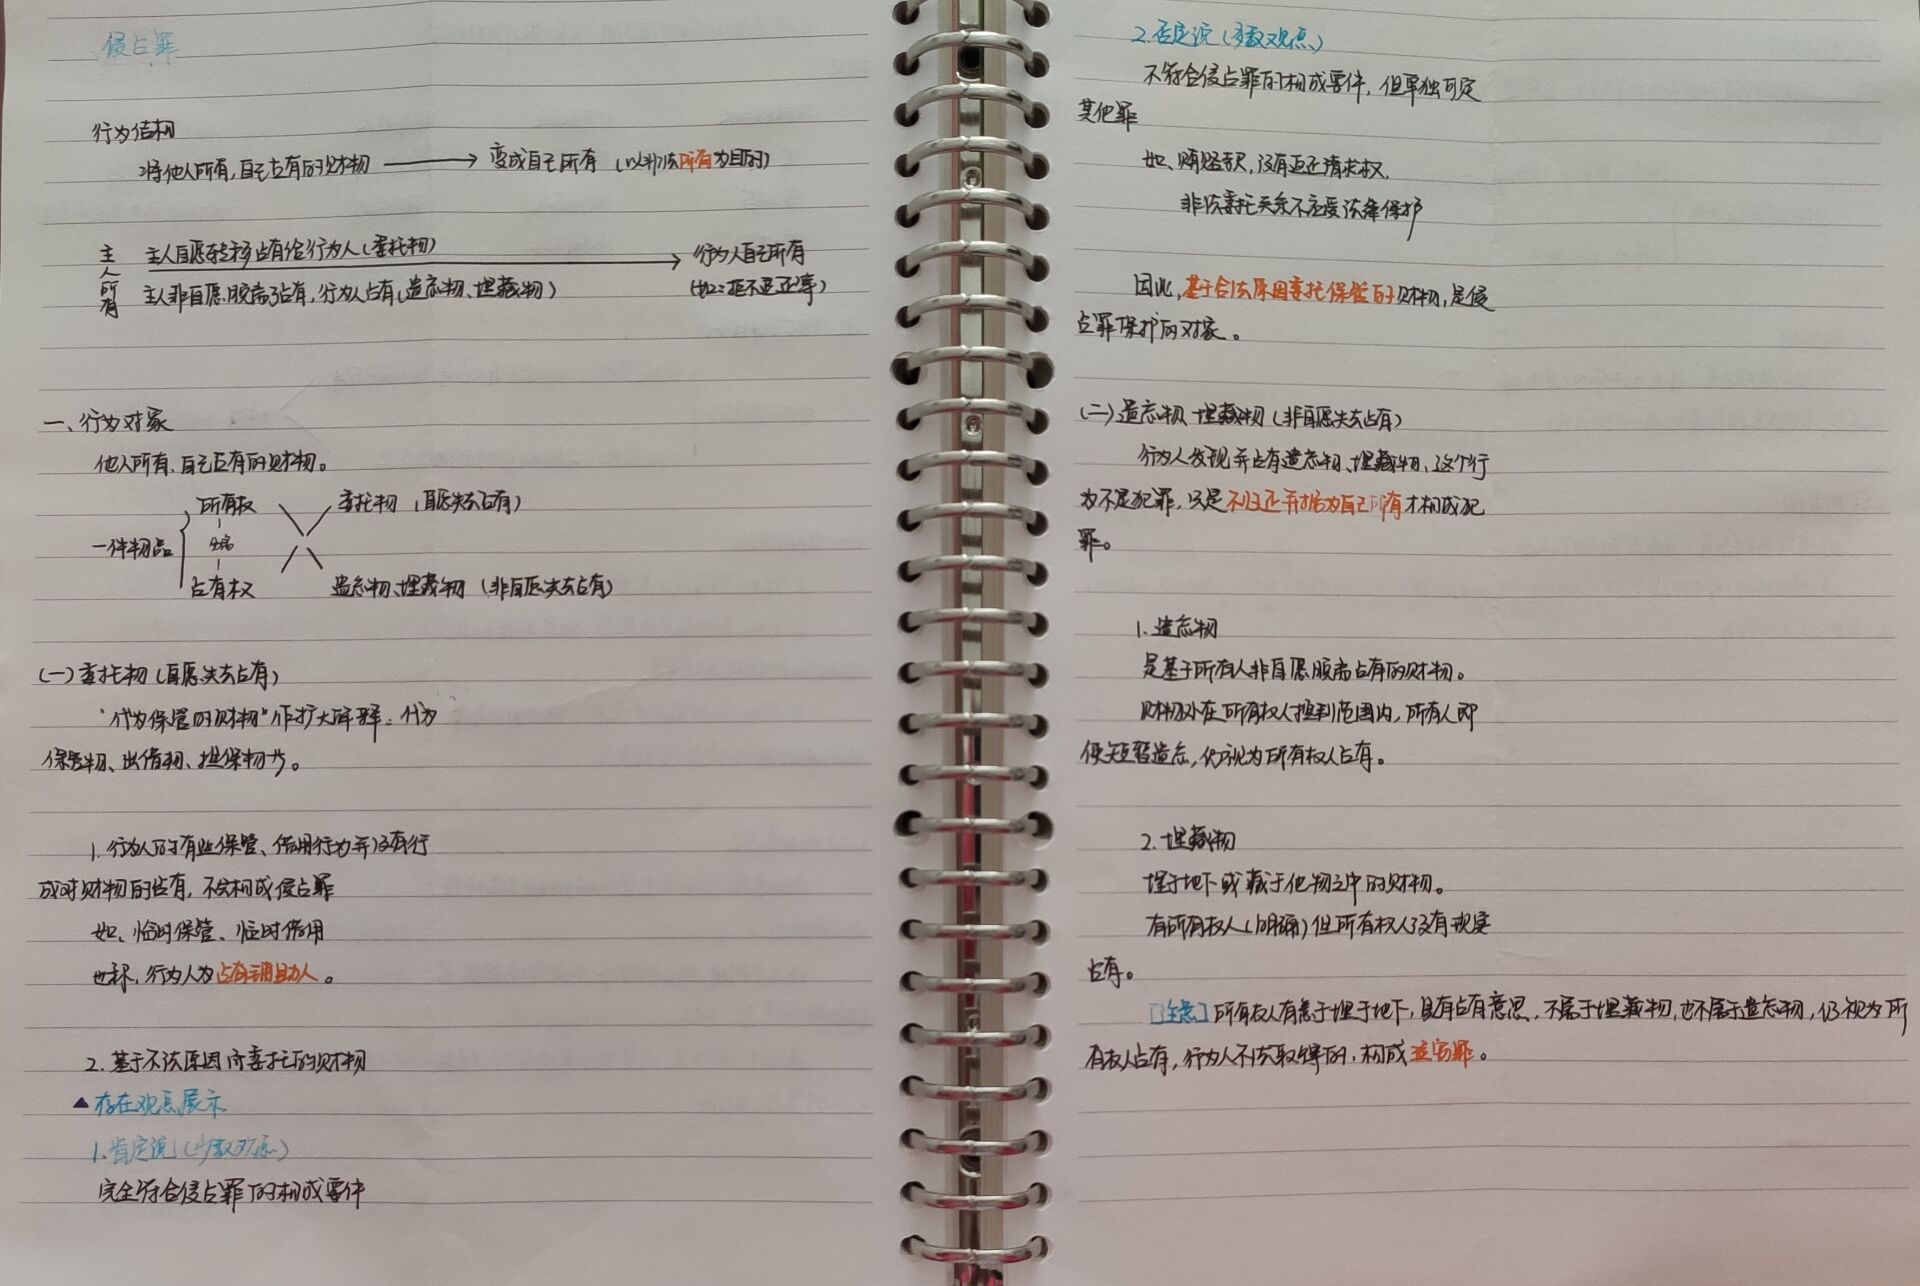 侵占罪
行为结构
将他人所有,自己占有的财物 → 变成自己所有 (以非法所有为目的)
主人所有
主人自愿转移占有给行为人(委托物)
主人非自愿脱离了占有,行为人占有(遗忘物、埋藏物)
行为人自己所有
(如:拒不退还等)
一、行为对象
他人所有、自己占有的财物。
所有权 委托物 (自愿失去占有)
一件物品 分离
占有权 遗忘物、埋藏物 (非自愿失去占有)
(一)委托物(自愿失去占有)
"代为保管的财物"作扩大解释:代为
保管物、出借物、担保物等。
1.行为人的有些保管、借用行为并没有形
成对财物的占有,不会构成侵占罪
如、临时保管、临时借用
也称,行为人为占有辅助人。
2.基于不法原因所委托的财物
▲存在观点展示
1.肯定说(少数观点)
完全符合侵占罪的构成要件
2.否定说(多数观点)
不符合侵占罪的构成要件,但单独可定
其他罪
如、贿赂款,没有返还请求权,
非法委托关系不应受法律保护
因此,基于合法原因委托保管的财物,是侵
占罪保护的对象。
(二)遗忘物、埋藏物(非自愿失去占有)
行为人发现并占有遗忘物、埋藏物,这个行
为不是犯罪,只是不归还并据为自己所有才构成犯
罪。
1.遗忘物
是基于所有人非自愿脱离占有的财物。
财物处在所有权人控制范围内,所有人即
使短暂遗忘,仍视为所有权人占有。
2.埋藏物
埋于地下或藏于他物之中的财物。
有所有权人(明确)但所有权人没有现实
占有。
[注意]所有权人有意于埋于地下,具有占有意思,不属于埋藏物,也不属于遗忘物,仍视为所
有权人占有,行为人不法取得的,构成盗窃罪。